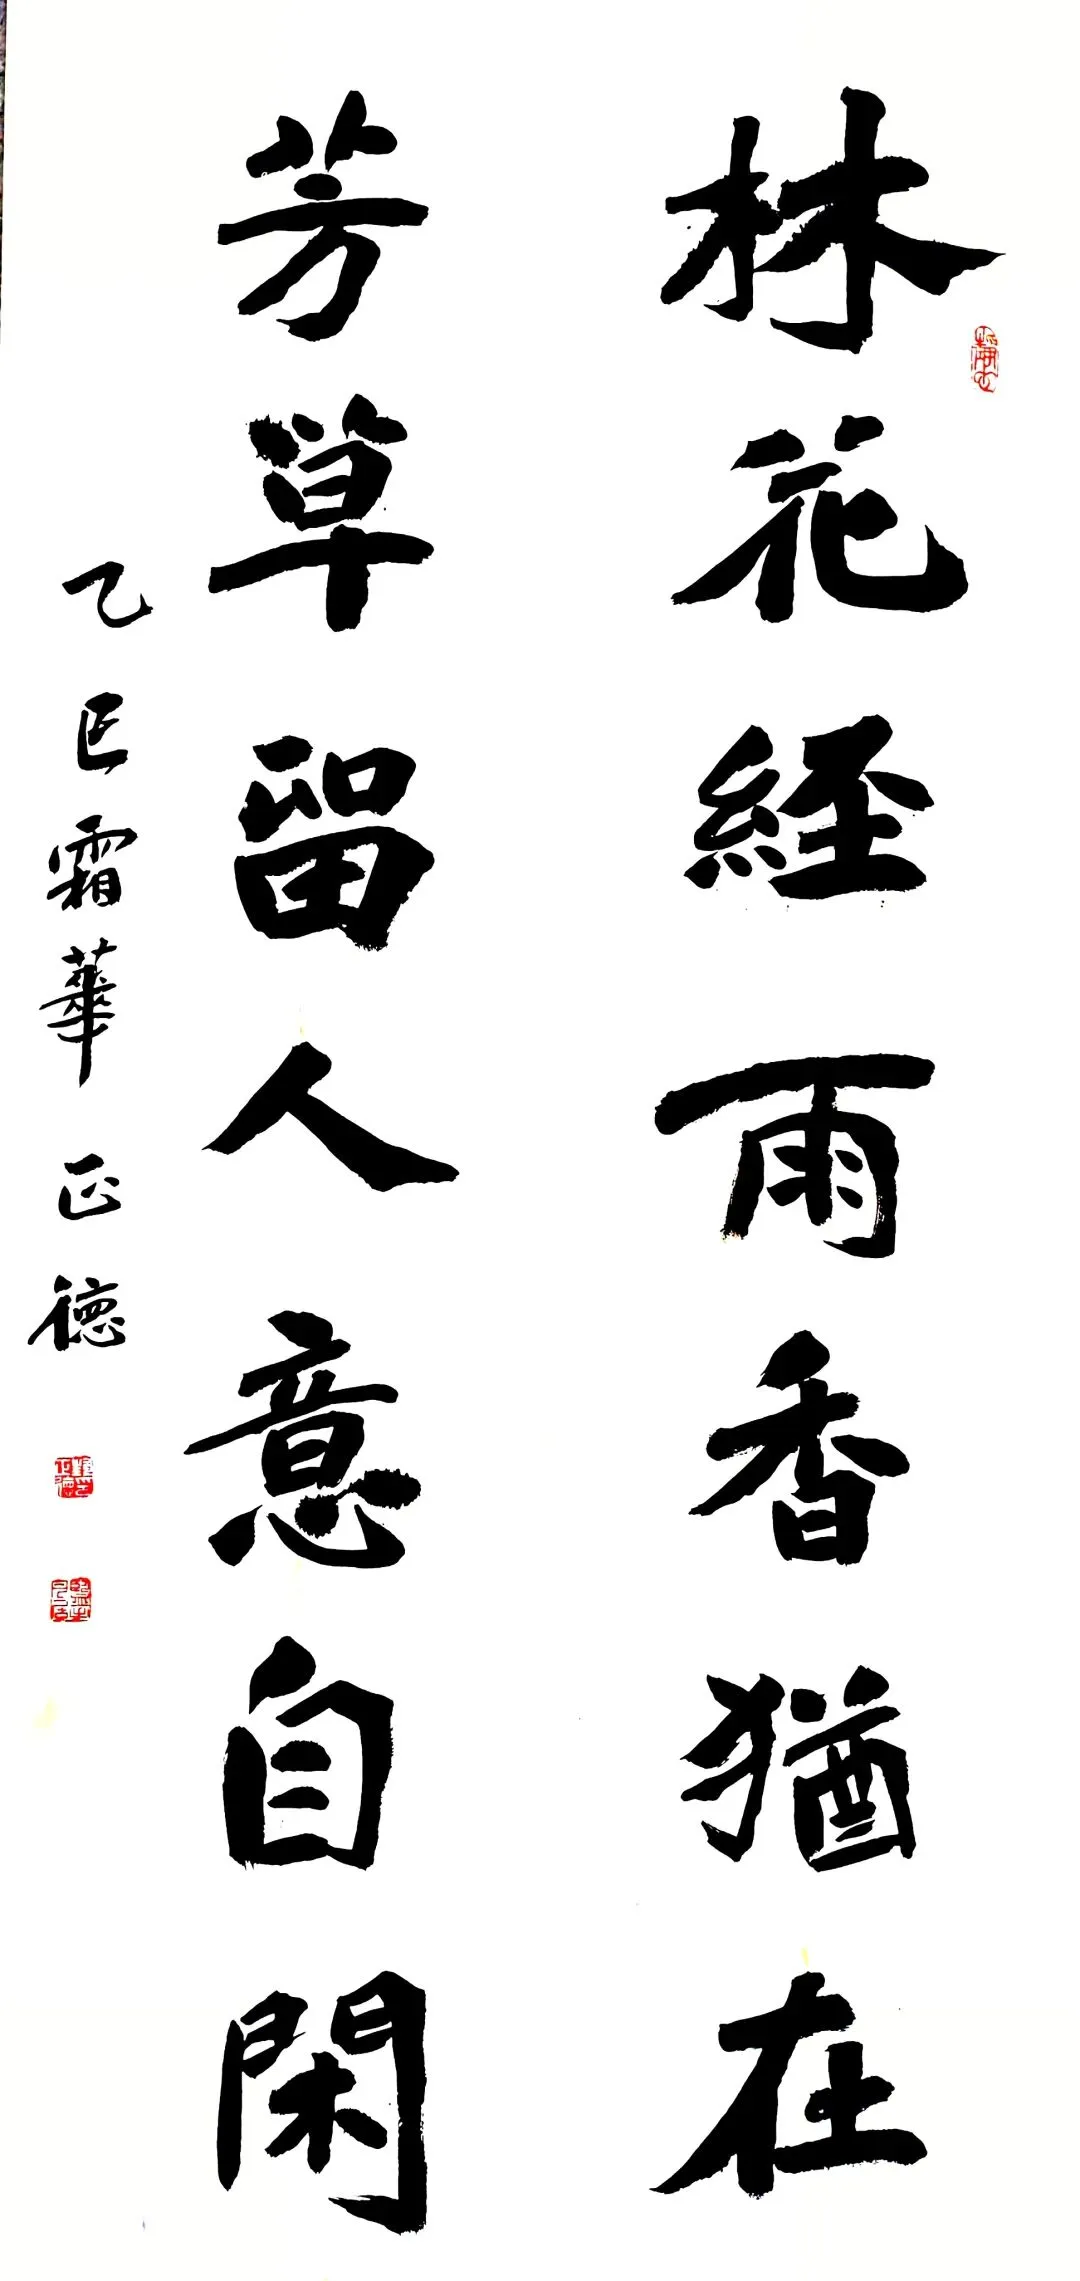 林花経雨香猶在
芳草留人意自閑
乙巳霜華正德